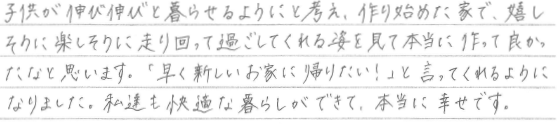 子供が伸び伸びと暮らせるようにと考え、作り始めた家で、嬉し
そうに楽しそうに走り回って過ごしてくれる姿を見て本当に作って良かっ
たなと思います。「早く新しいお家に帰りたい!」と言ってくれるように
なりました。私達も快適な暮らしができて、本当に幸せです。